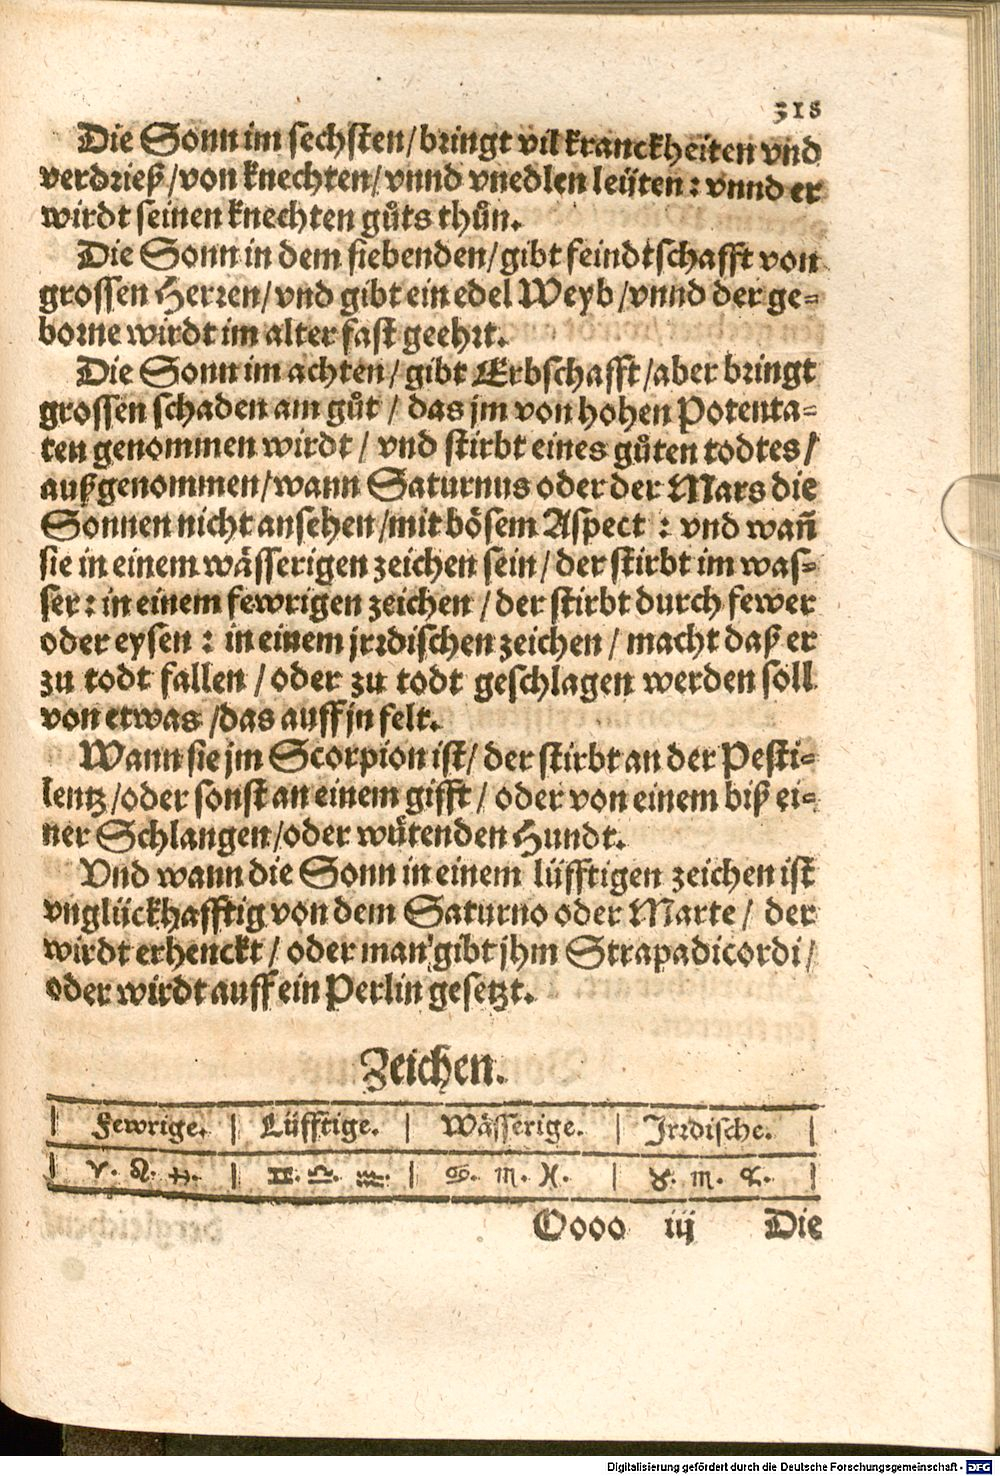 318
Die Sonn im sechsten/bringt vil kranckheiten vnd
verdrieß/von knechten/vnnd vnedlen leüten: vnnd er
wirdt seinen knechten gůts thůn.
Die Sonn in dem siebenden/gibt feindtschafft von
grossen Herren/vnd gibt ein edel Weyb/vnnd der ge-
borne wirdt im alter fast geehrt.
Die Sonn im achten/gibt Erbschafft/aber bringt
grossen schaden am gůt/das jm von hohen Potenta-
ten genommen wirdt/vnd stirbt eines gůten todtes/
außgenommen/wann Saturnus oder der Mars die
Sonnen nicht ansehen/mit bösem Aspect: vnd wañ
sie in einem wässerigen zeichen sein/der stirbt im was-
ser: in einem fewrigen zeichen/der stirbt durch fewer
oder eysen: in einem jrrdischen zeichen/macht daß er
zu todt fallen/oder zu todt geschlagen werden soll
von etwas/das auff jn felt.
Wann sie jm Scorpion ist/der stirbt an der Pesti-
lentz/oder sonst an einem gifft/oder von einem biß ei-
ner Schlangen/oder wütenden Hundt.
Vnd wann die Sonn in einem lüfftigen zeichen ist
vnglückhafftig von dem Saturno oder Marte/der
wirdt erhenckt/oder man gibt jhm Strapadicordi/
oder wirdt auff ein Perlin gesetzt.
Zeichen.
Fewrige. | Lüfftige. | Wässerige. | Jrrdische.
♈. ♌. ♐. | ♊. ♎. ♒. | ♋. ♏. ♓. | ♉. ♍. ♑.
Oooo iij Die
Digitalisierung gefördert durch die Deutsche Forschungsgemeinschaft - DFG